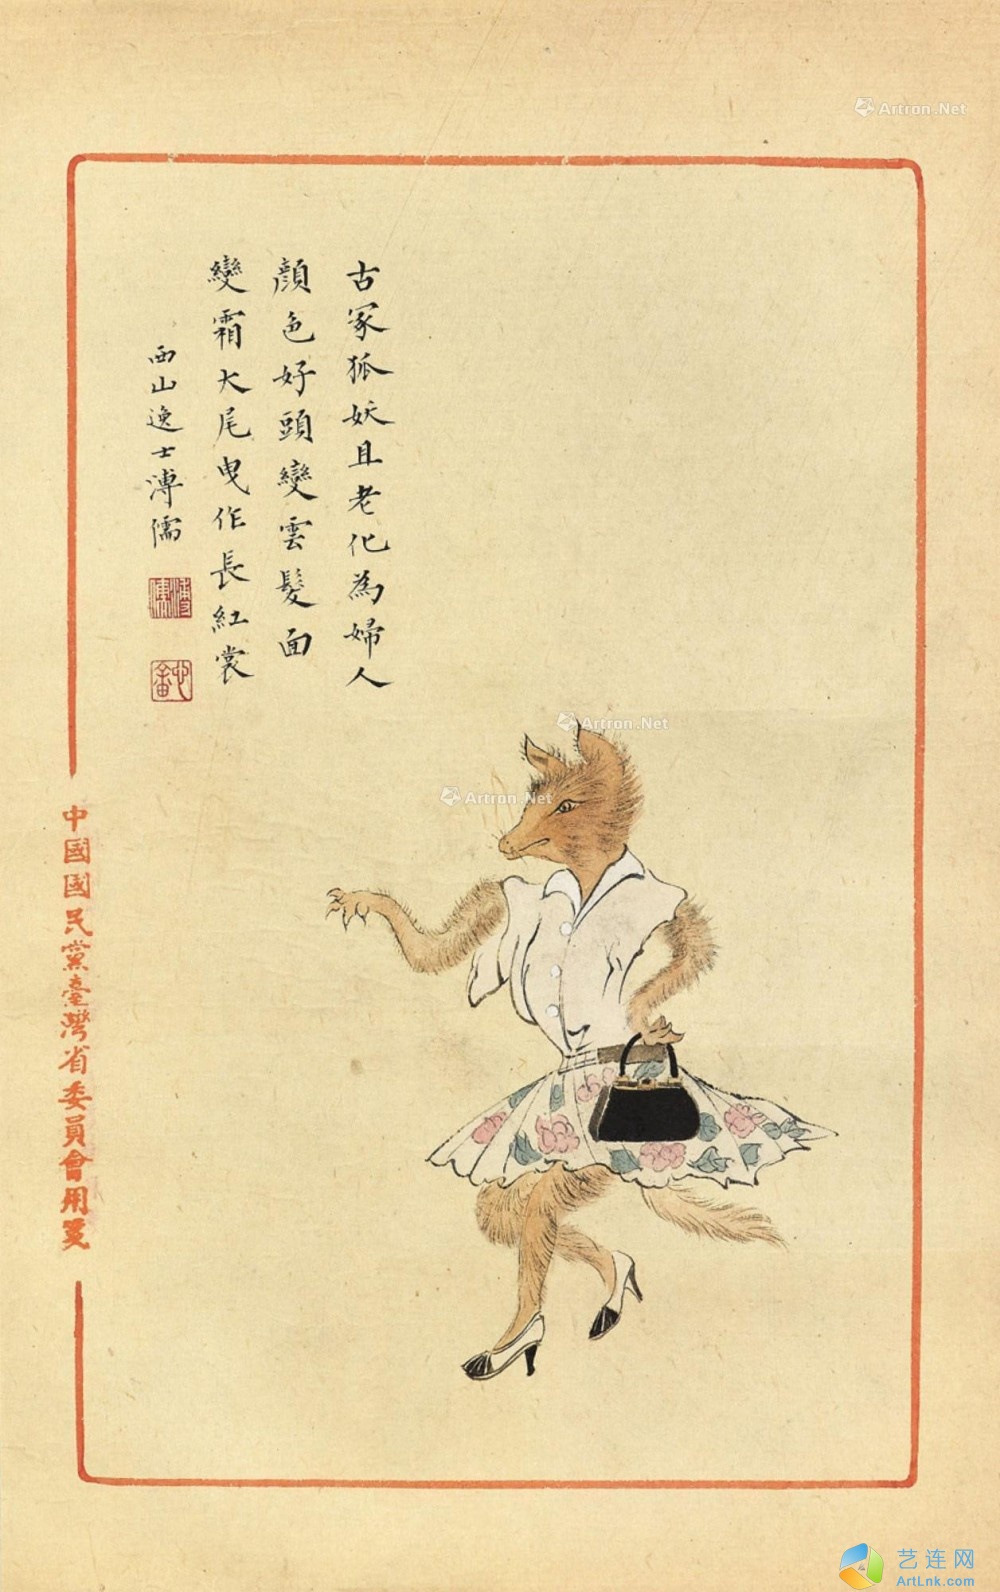 Artron.Net
古冢狐妖且老化為婦人
顔色好頭變雲髮面
變霜大尾曳作長紅裳
西山逸士溥儒
Artron.Net
Artron.Net
中國國民黨臺灣省委員會用箋
艺连网
ArtLnk.com